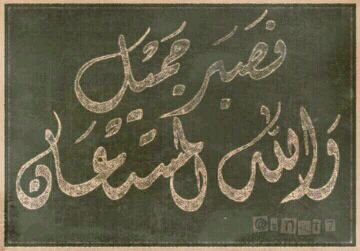 فصبر جميل
والله المستعان